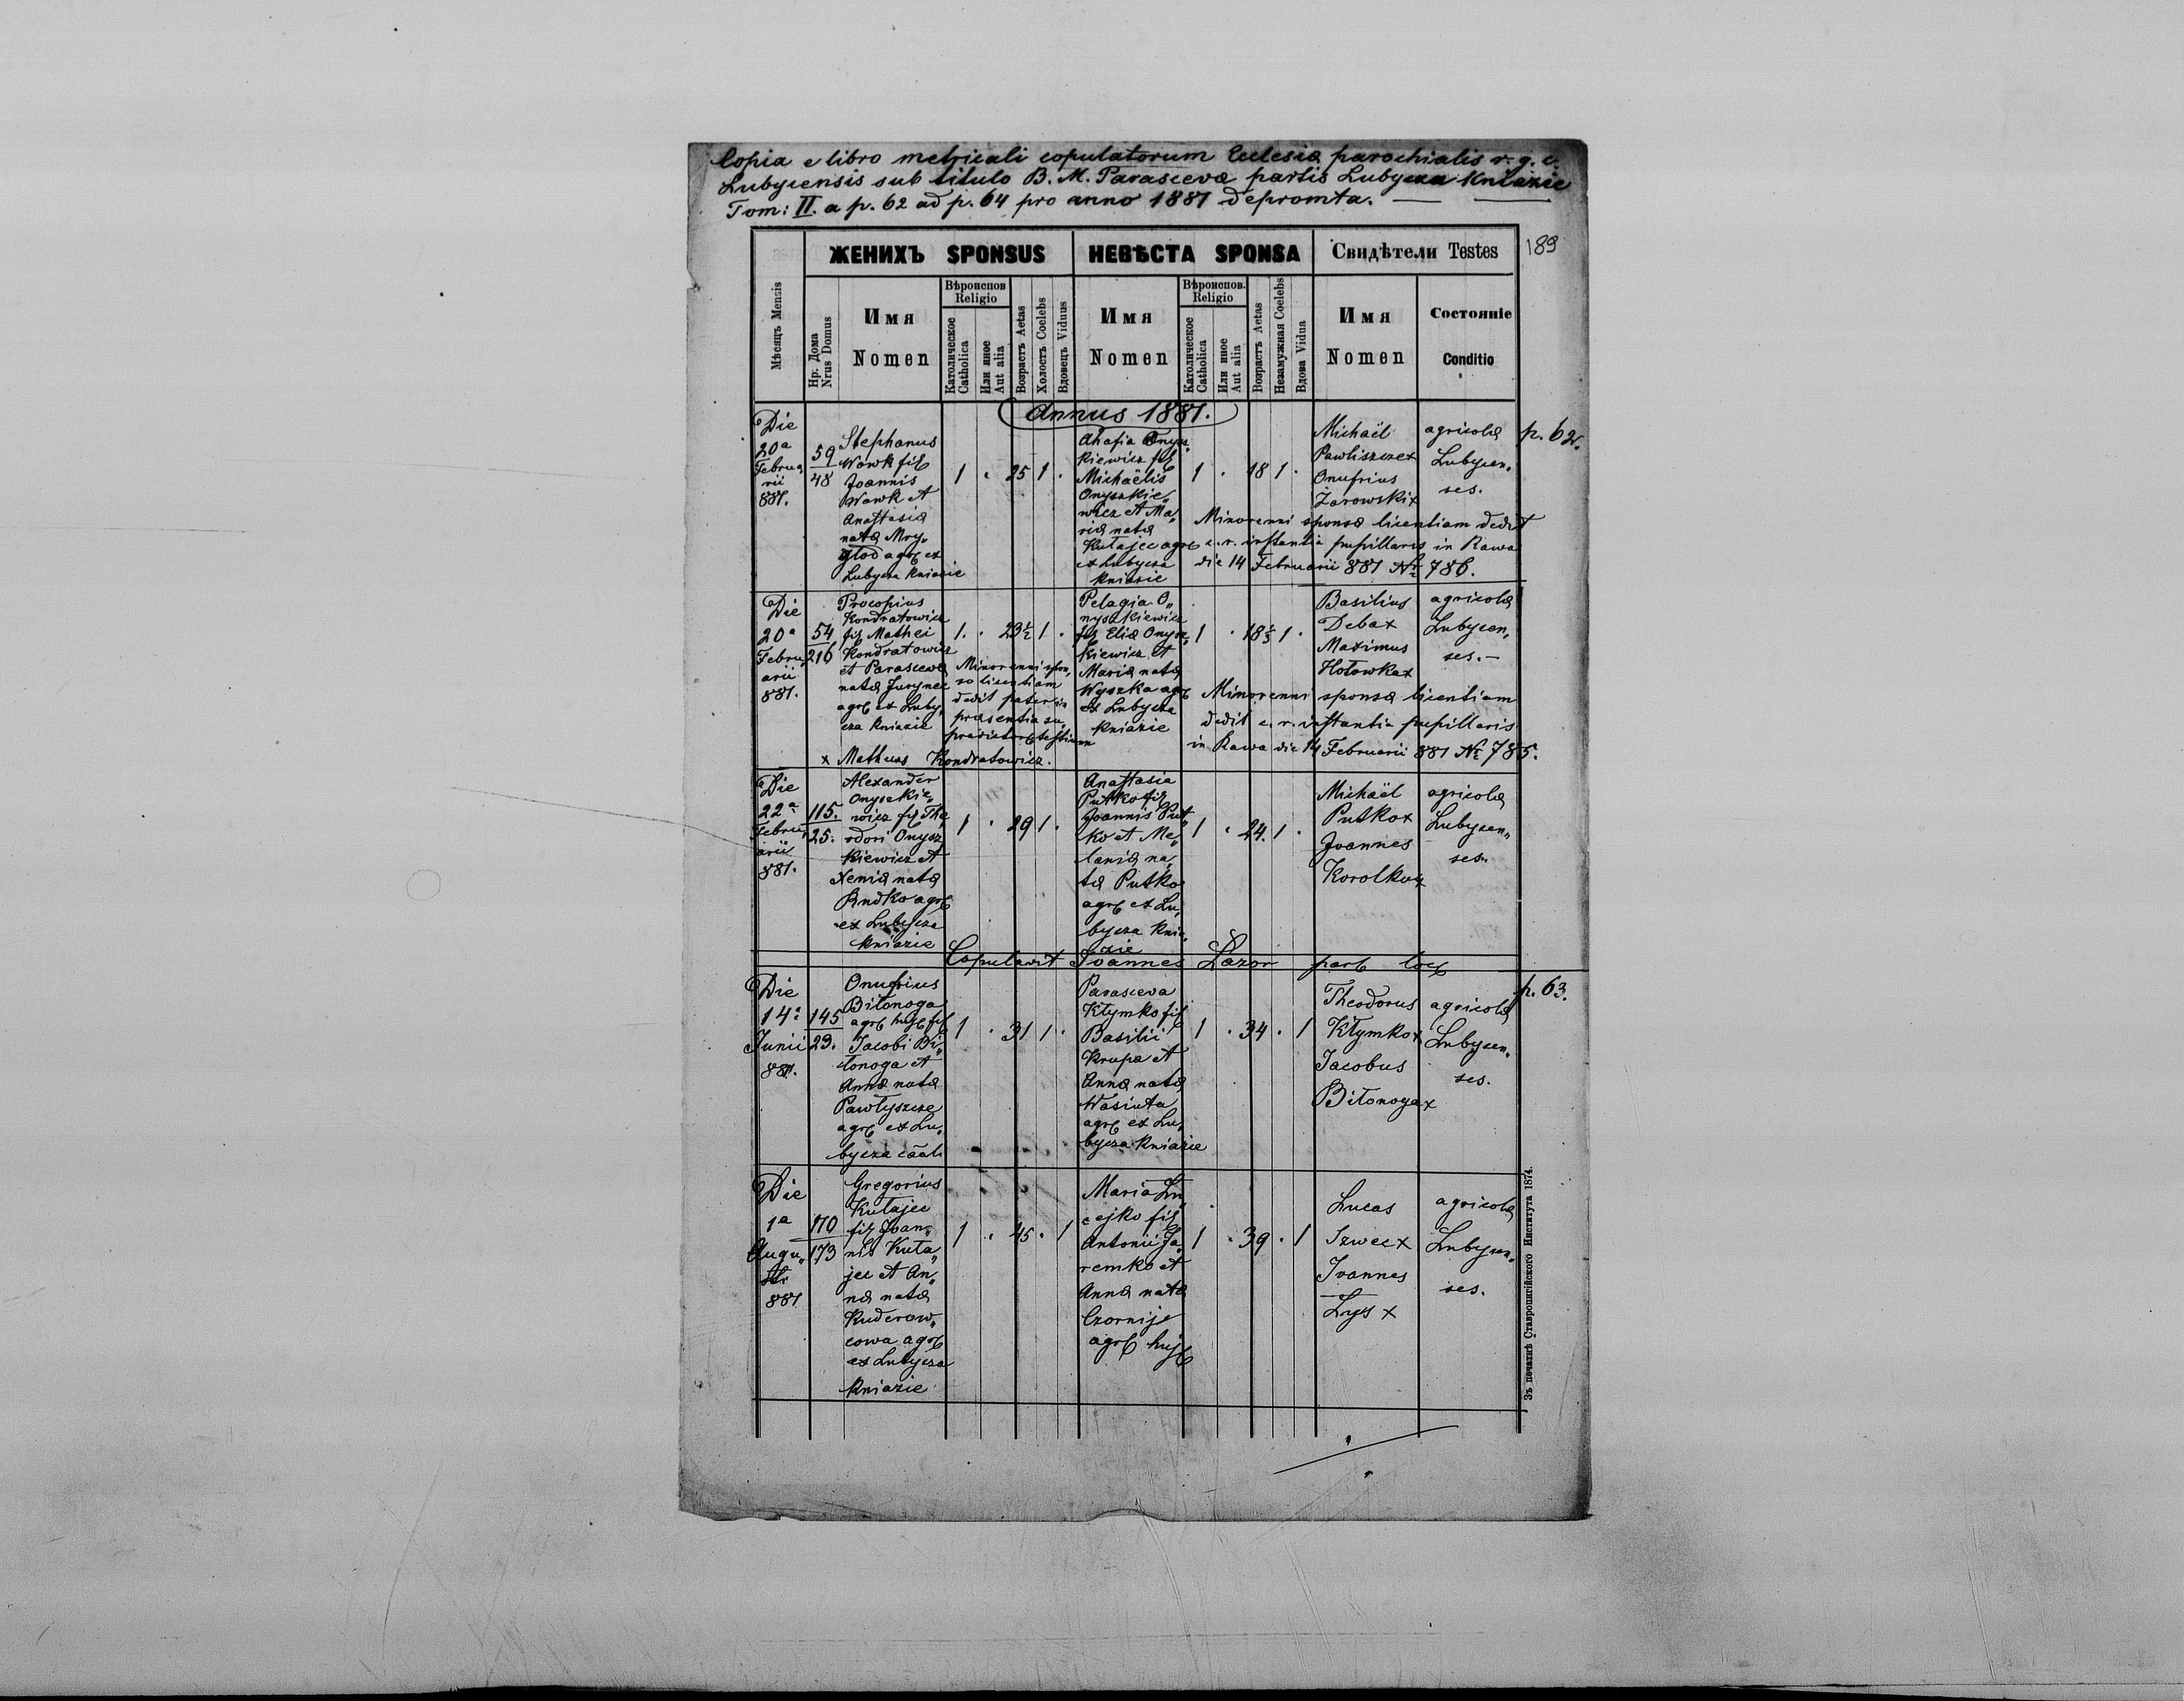 Copia e libro metricali copulatorum Ecclesiæ parochialis r. g. c.
Lubycensis sub titulo B. M. Parascevæ partis Lubycza Kniazie
Tom: II. a p. 62 ad p. 64 pro anno 1881 depromta.
189
Мѣсяцъ Mensis
ЖЕНИХЪ SPONSUS
НЕВѢСТА SPONSA
Свидѣтели Testes
Нр. Дома
Nrus Domus
Имя
Nomen
Вѣроиспов
Religio
Католическое
Catholica
Или иное
Aut alia
Возрастъ Aetas
Холостъ Coelebs
Вдовецъ Viduus
Имя
Nomen
Вѣроиспов.
Religio
Католическое
Catholica
Или иное
Aut alia
Возрастъ Aetas
Незамужная Coelebs
Вдова Vidua
Имя
Nomen
Состояніе
Conditio
Annus 1881.
Die
20a
Februa
rii
881.
59
48
Stephanus
Wowk fil
Joannis
Wowk et
Anastasiæ
natæ Mry„
głod agr ex
Lubycza Kniazie
1 . 25 1 .
Ahafia Onysz„
kiewicz fil
Michaëlis
Onyszkie„
wicz et Ma„
riæ natæ
Kutajec agr
ex Lubycza
Kniazie
1 . 18 1 .
Michaël
Pawliszcze x
Onufrius
Żarowski x
agricolæ
Lubycen„
ses.
p. 62.
Minorenni sponsæ licentiam dedit
c. r. instantia pupillaris in Rawa
die 14 Februarii 881 Nr 786.
Die
20a
Febru„
arii
881.
54
216
Procopius
Kondratowicz
fil Mathei
Kondratowicz
et Parascevæ
natæ Jurynec
agr ex Luby„
cza Kniazie
1. . 23½ 1 .
Minorenni spon„
so licentiam
dedit pater in
præsentia su„
testium
x Matheus Kondratowicz.
Pelagia O„
nyszkiewicz
fil Eliæ Onysz„
kiewicz et
Mariæ natæ
Wyszka agr
ex Lubycza
Kniazie
1 . 18 1 .
Basilius
Deba x
Maximus
Hotowka x
agricolæ
Lubycen„
ses. —
Minorenni sponsæ licentiam
dedit c. r. instantia pupillaris
in Rawa die 14 Februarii 881 Nr 785.
Die
22a
Febru„
arii
881.
115.
25.
Alexander
Onyszkie„
wicz fil The„
odori Onysz„
kiewicz et
Xeniæ natæ
Rudko agr
ex Lubycza
Kniazie
1 . 29 1 .
Anastasia
Putko fil
Joannis Put„
ko et Me„
laniæ na„
tæ Putko
agr ex Lu„
bycza Knia„
zie
1 . 24. 1 .
Michaël
Putko x
Joannes
Korolko x
agricolæ
Lubycen„
ses.
Copulavit Joannes Lazor par loc
Die
14a
Junii
881.
145
29.
Onufrius
Biłonoga
agr huj fil
Jacobi Bi„
łonoga et
Annæ natæ
Pawłyszcze
agr ex Lu„
bycza cāāli
1 . 31 1 .
Parasceva
Kłymko fil
Basilii
Krupa et
Annæ natæ
Wasiuta
agr ex Lu„
bycza Kniazie
1 . 34 . 1
Theodorus
Kłymko x
Jacobus
Biłonoga x
agricolæ
Lubycen„
ses.
p. 63.
Die
1a
Augu„
sti
881
170
173
Gregorius
Kutajec
fil Joan„
nis Kuta„
jec et An„
næ natæ
Kuderow„
cowa agr
ex Lubycza
Kniazie
1 . 45 . 1
Maria Lu„
cejko fil
Antonii Ja„
remko et
Annæ natæ
Czornije
agr huj
1 . 39 . 1
Lucas
Szwec x
Joannes
Łys x
agricolæ
Lubycen„
ses.
Зъ печатнѣ Ставропигійского Института 1874.